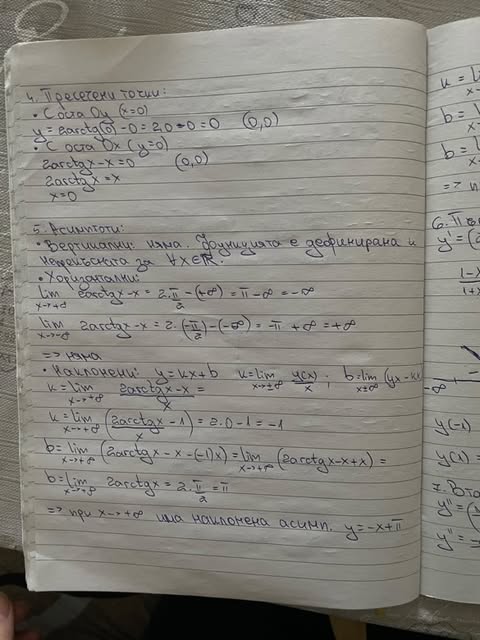 4. Пресечени точки:
• С оста Oy (x=0)
y = 2arctg(0) - 0 = 2.0 - 0 = 0 (0,0)
• С оста Ox (y=0)
2arctgx - x = 0 (0,0)
2arctgx = x
x = 0
5. Асимптоти:
• Вертикални: няма. Функцията е дефинирана и
непрекъсната за ∀x∈ℝ.
• Хоризонтални:
lim x→+∞ 2arctgx - x = 2.π/2 - (+∞) = π - ∞ = -∞
lim x→-∞ 2arctgx - x = 2.(-π/2) - (-∞) = -π + ∞ = +∞
=> няма
• Наклонени: y = kx + b k = lim x→±∞ y(x)/x ; b = lim x→±∞ (yx - kx)
k = lim x→+∞ 2arctgx - x / x =
k = lim x→+∞ (2arctgx / x - 1) = 2.0 - 1 = -1
b = lim x→+∞ (2arctgx - x - (-1)x) = lim x→+∞ (2arctgx - x + x) =
b = lim x→+∞ 2arctgx = 2.π/2 = π
=> при x→+∞ има наклонена асимп. y = -x + π
k = li
x→
b = l
x→
b = l
x→
=> п
6.
y' = (2
1-x
1+x
-∞
y(-1)
y(1) =
7. Вто
y'' = (
y'' =